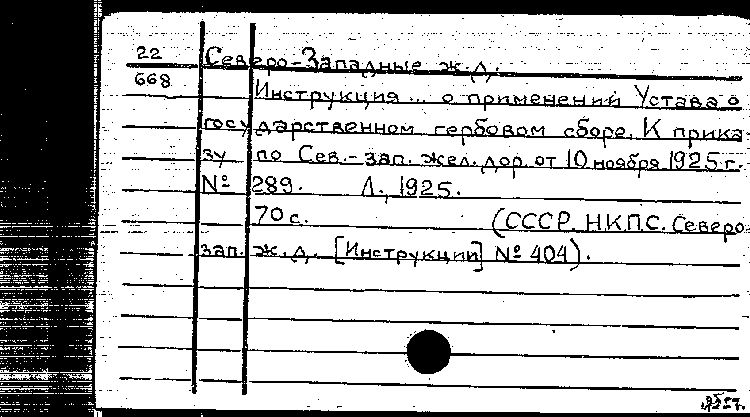 22
668
Северо-Западные ж.д.
Инструкция ... о применении Устава о
государственном гербовом сборе. К прика-
зу по Сев.-зап. жел. дор. от 10 ноября 1925 г.
№ 289. Л., 1925.
70 с. (СССР. НКПС. Северо-
зап. ж.д. [Инструкции] № 404).